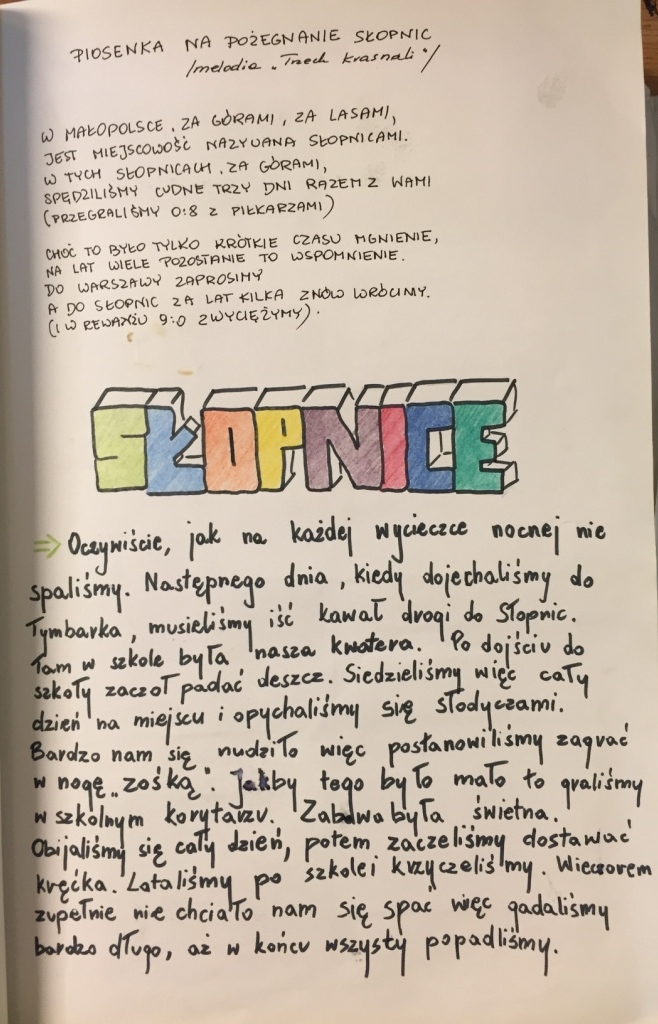 PIOSENKA NA POŻEGNANIE SŁOPNIC
/melodia „Trzech krasnali"/
W MAŁOPOLSCE, ZA GÓRAMI, ZA LASAMI,
JEST MIEJSCOWOŚĆ NAZYWANA SŁOPNICAMI.
W TYCH SŁOPNICACH, ZA GÓRAMI,
SPĘDZILIŚMY CUDNE TRZY DNI RAZEM Z WAMI
(PRZEGRALIŚMY 0:8 Z PIŁKARZAMI)
CHOĆ TO BYŁO TYLKO KRÓTKIE CZASU MGNIENIE,
NA LAT WIELE POZOSTANIE TO WSPOMNIENIE.
DO WARSZAWY ZAPROSIMY
A DO SŁOPNIC ZA LAT KILKA ZNÓW WRÓCIMY.
(I W REWANŻU 9:0 ZWYCIĘŻYMY).
SŁOPNICE
⇒ Oczywiście, jak na każdej wycieczce nocnej nie
spaliśmy. Następnego dnia, kiedy dojechaliśmy do
Tymbarka, musieliśmy iść kawał drogi do Słopnic.
Tam w szkole była nasza kwatera. Po dojściu do
szkoły zaczoł padać deszcz. Siedzieliśmy więc cały
dzień na miejscu i opychaliśmy się słodyczami.
Bardzo nam się nudziło więc postanowiliśmy zagrać
w nogę „zośką". Jakby tego było mało to graliśmy
w szkolnym korytarzu. Zabawa była świetna.
Obijaliśmy się cały dzień, potem zaczeliśmy dostawać
kręćka. Lataliśmy po szkole i krzyczeliśmy. Wieczorem
zupełnie nie chciało nam się spać więc gadaliśmy
bardzo długo, aż w końcu wszysty popadliśmy.